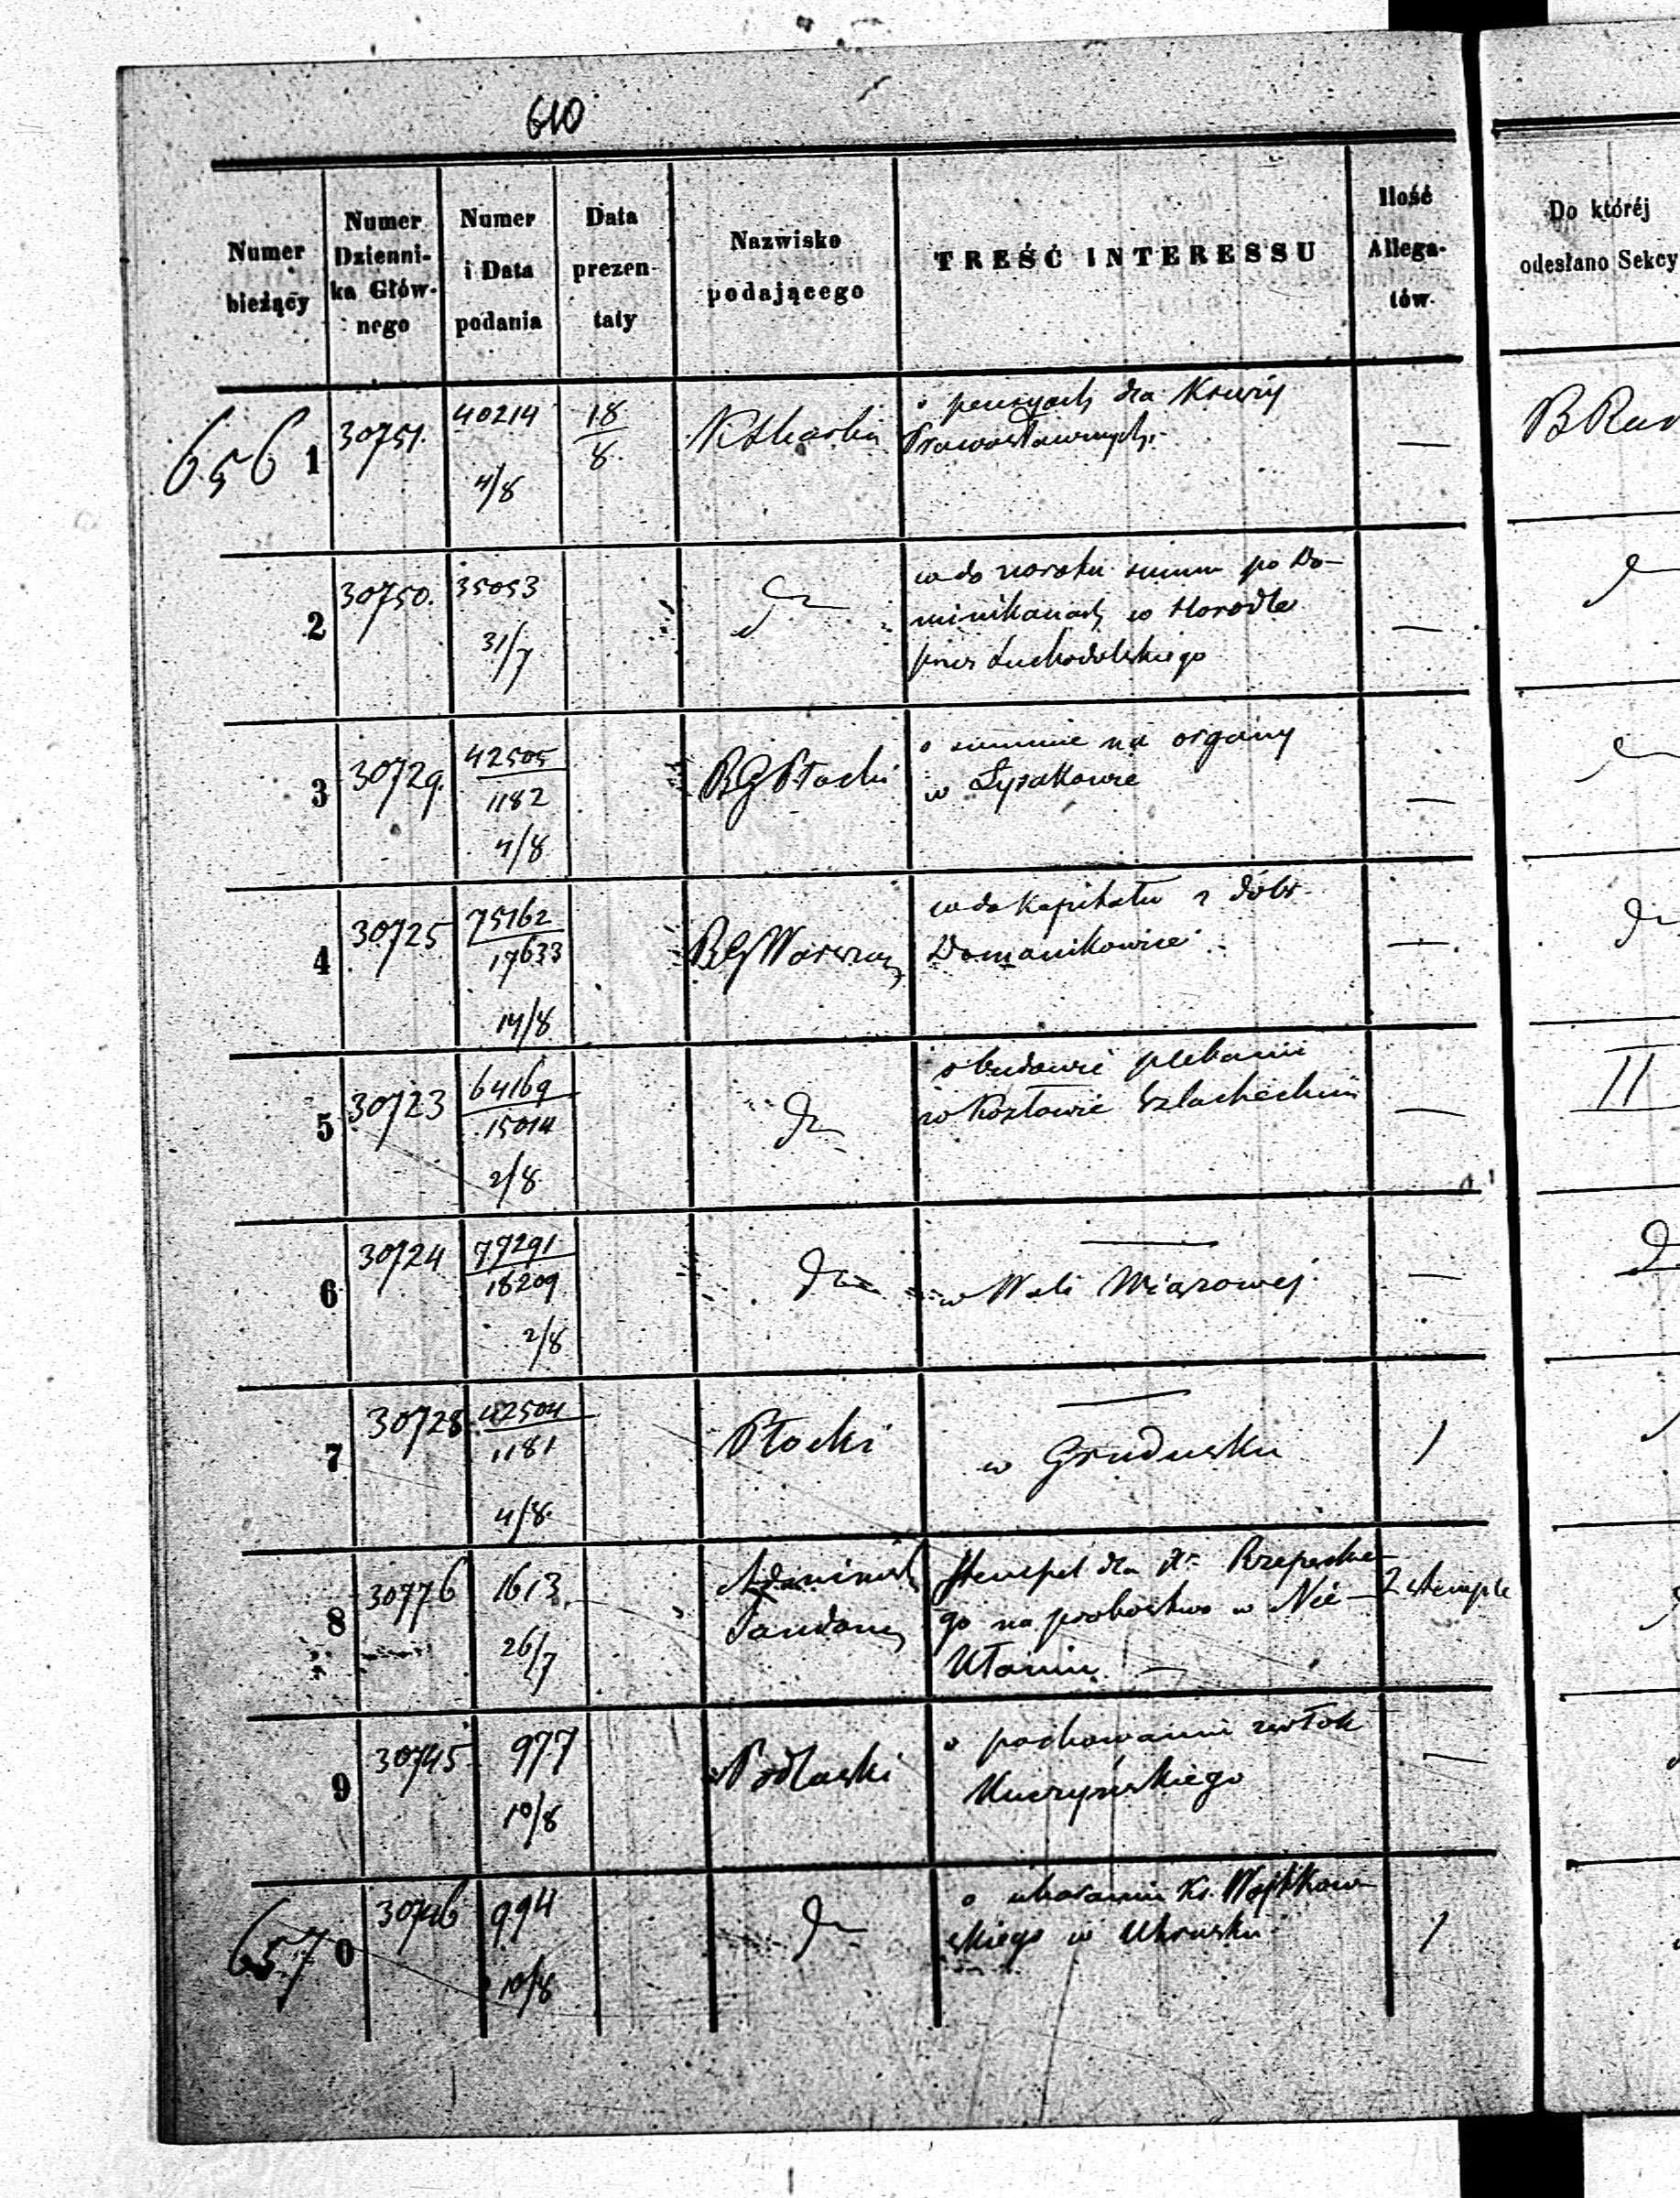 610
Numer bieżący
Numer Dzienni- ka Głów- nego
Numer i Data podania
Data prezen- taty
Nazwisko podającego
TREŚĆ INTERESSU
Ilość Allega- tów.
Do któréj odesłano Sekcy
656 1
30751.
40214
4/8
18/8.
o pensyach dla
Prawosławnych.
—
2
30750.
35053
31/7
summ po Do-
minikanach w Horodle
przez Suchodolskiego
—
3
30729.
42505
1182
4/8
BG Płocki
o summie na organy
w Łysakowie
—
4
30725
75162
17633
14/8
BG Warszaw
wdo kapitału z dóbr
Domanikowice
—
5
30723
64169
15014
2/8
o budowie plebanii
w Kozłowie Szlacheckim
—
II
6
30724
77291
18209
2/8
—
w Woli Miązowej
—
7
30728
42504
1181
4/8.
Płocki
—
w Grudusku
1
8
30776
1613.
26/7
Administ
Sandom
Stempel dla Xa Rzepeckie-
go na probostwo w Nie-
2 stemple
9
30745
977
10/8
Podlaski
o pochowanie zwłok
Kuczyńskiego
—
657 0
30746
994
10/8
o ukaranie Ks. Wojtkow-
skiego w Uhrusku
1